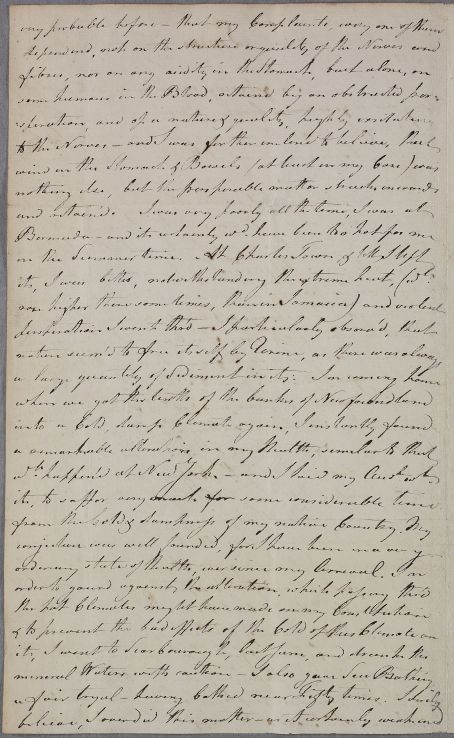 very probable before - that my Complaints, every one of them
depend, not on the structure or quality of the Nerves and
fibres, nor on any acidity in the Stomach, but alone, on
some humour in the Blood, retained by an obstructed per=
=spiration, and of a nature & quality, highly irritating
to the Nerves - and I was further inclined to believe, that
wind in the Stomach & Bowels (at least in my Case) was
nothing else, but the perspirable matter struck inwards
and retained. I was very poorly all the time I was at
Bermuda - and it certainly wd. have been too hot for me
in the Summer time. At Charles Town & till I left
it, I was better, notwithstanding the extreme heat, (wch.
rose higher there some times, than in Jamaica) and violent
perspiration I went thro' - I particularly observed, that
nature seem'd to free itself by Urine, as there was always
a large quantity of Sediment in it. In coming home
when we got the length of the banks of Newfoundland
into a Cold, damp Climate again, I instantly found
a remarkable alteration in my Health, similar to that
wch. happen'd at New York - and I laid my Acct. wth.
it, to suffer very much for some considerable time
from the Cold & dampness of my native Country. My
conjecture was well founded, for I have been in a very
ordinary state of Health, ever since my Arrival. In
order to guard against the alteration, which passing thro'
the hot Climates might have made on my Constitution
& to prevent the bad effects of the Cold of this Climate on
it, I went to Scarborough, last June, and drank the
mineral Waters with caution - I also gave Sea Bathing
a fair tryal - having bathed near fifty times. I verily
believe, I overdid this matter - as it certainly weakened